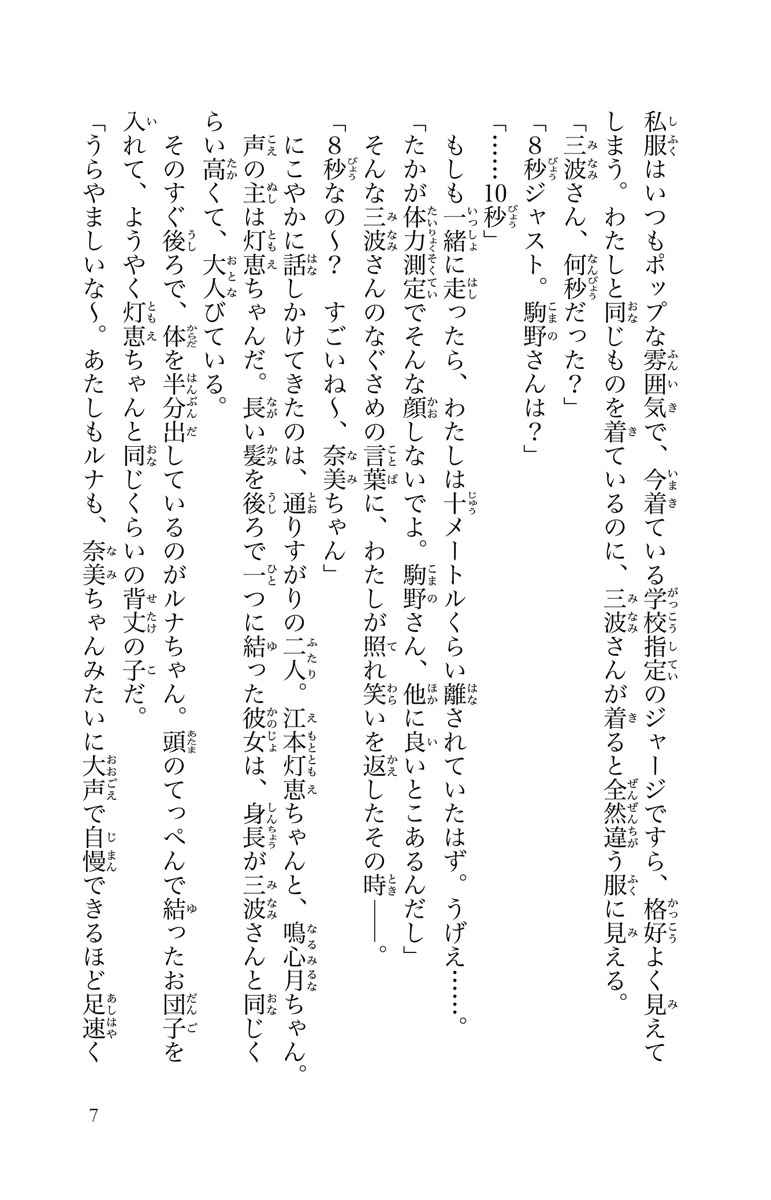 私服はいつもポップな雰囲気で、今着ている学校指定のジャージですら、格好よく見えて
しまう。わたしと同じものを着ているのに、三波さんが着ると全然違う服に見える。
「三波さん、何秒だった？」
「８秒ジャスト。駒野さんは？」
「……10秒」
もしも一緒に走ったら、わたしは十メートルくらい離されていたはず。うげえ……。
「たかが体力測定でそんな顔しないでよ。駒野さん、他に良いとこあるんだし」
そんな三波さんのなぐさめの言葉に、わたしが照れ笑いを返したその時――。
「８秒なの～？　すごいね～、奈美ちゃん」
にこやかに話しかけてきたのは、通りすがりの二人。江本灯恵ちゃんと、鳴心月ちゃん。
声の主は灯恵ちゃんだ。長い髪を後ろで一つに結った彼女は、身長が三波さんと同じく
らい高くて、大人びている。
そのすぐ後ろで、体を半分出しているのがルナちゃん。頭のてっぺんで結ったお団子を
入れて、ようやく灯恵ちゃんと同じくらいの背丈の子だ。
「うらやましいな～。あたしもルナも、奈美ちゃんみたいに大声で自慢できるほど足速く
7